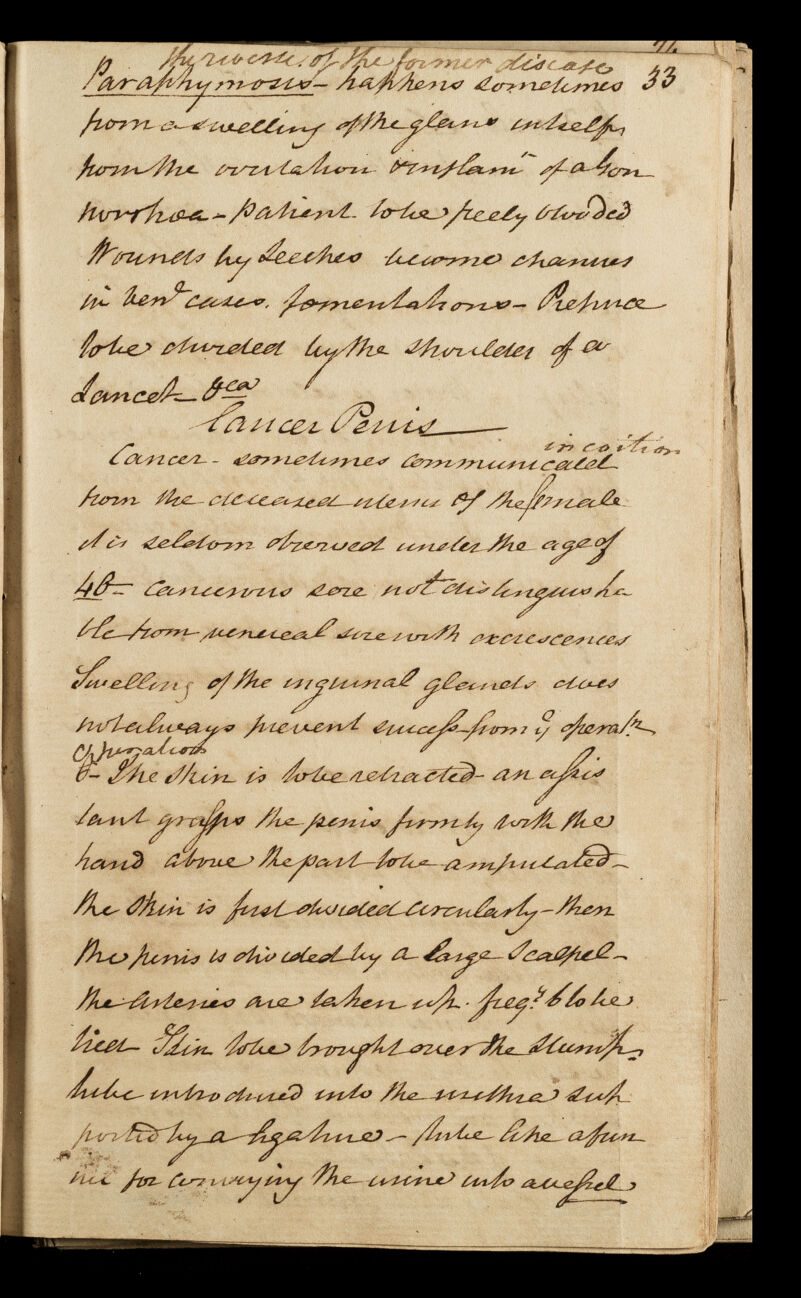 33
the reverse of the former disease
Paraphymosis - happens sometimes
from a swelling of the glans intself
from the irritation & inflamn of a Gon
norrhœa - patient to be freely blooded
Wounds by Leeches become chancres
in Vend cases. fomentations - Prepuce
to be divided by the shoulder of a
Lancet - &ca
Cancer Penis
in coition
Cancer - sometimes communicated
from the diseased uterus of the female
it is seldom observed under the age of
40 - cancerous sore not distinguisha
ble from venereal sore with excrescences
Swelling of the inguinal glands does
not always prevent success from ye operatn
operation
The skin is to be retracted - an assis
tant grasps the penis firmly with the
hand above the part to be amputated -
the skin is first divided circularly - then
the penis is divided by a large Scalpel -
the arteries are taken up. freqy 6 to be
tied Skin to be brought over the stump -
tube introduced into the urethra sup
ported by a ligature - tube like a fun
nel for conveying the urine into a vessel